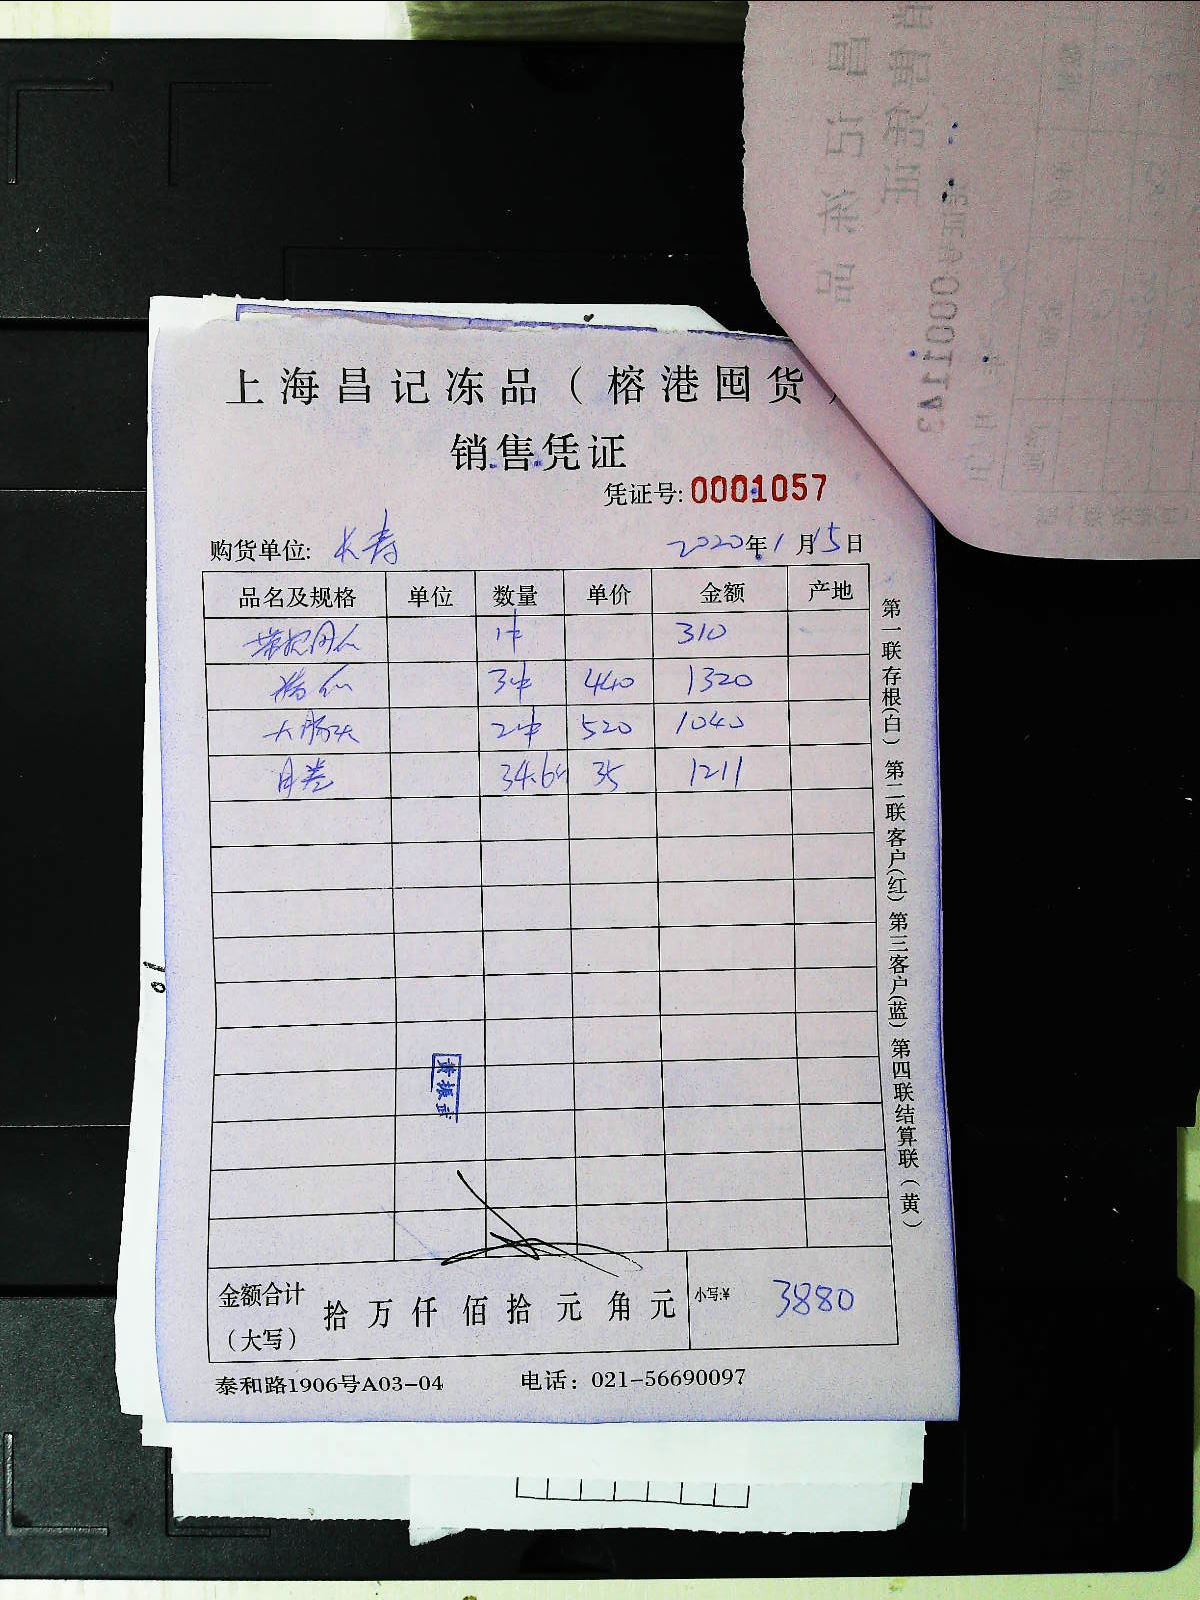 上海昌记冻品（榕港囤货）
销售凭证
凭证号: 0001057
购货单位: 长寿 2020年1月15日
品名及规格 单位 数量 单价 金额 产地
1件 310
3件 440 1320
大肠头 2件 520 1040
34.6斤 35 1211
黄振武
金额合计（大写） 拾万仟佰拾元角元 小写:¥ 3880
泰和路1906号A03-04 电话：021-56690097
第一联存根(白) 第二联客户(红) 第三客户(蓝) 第四联结算联（黄）
0001143